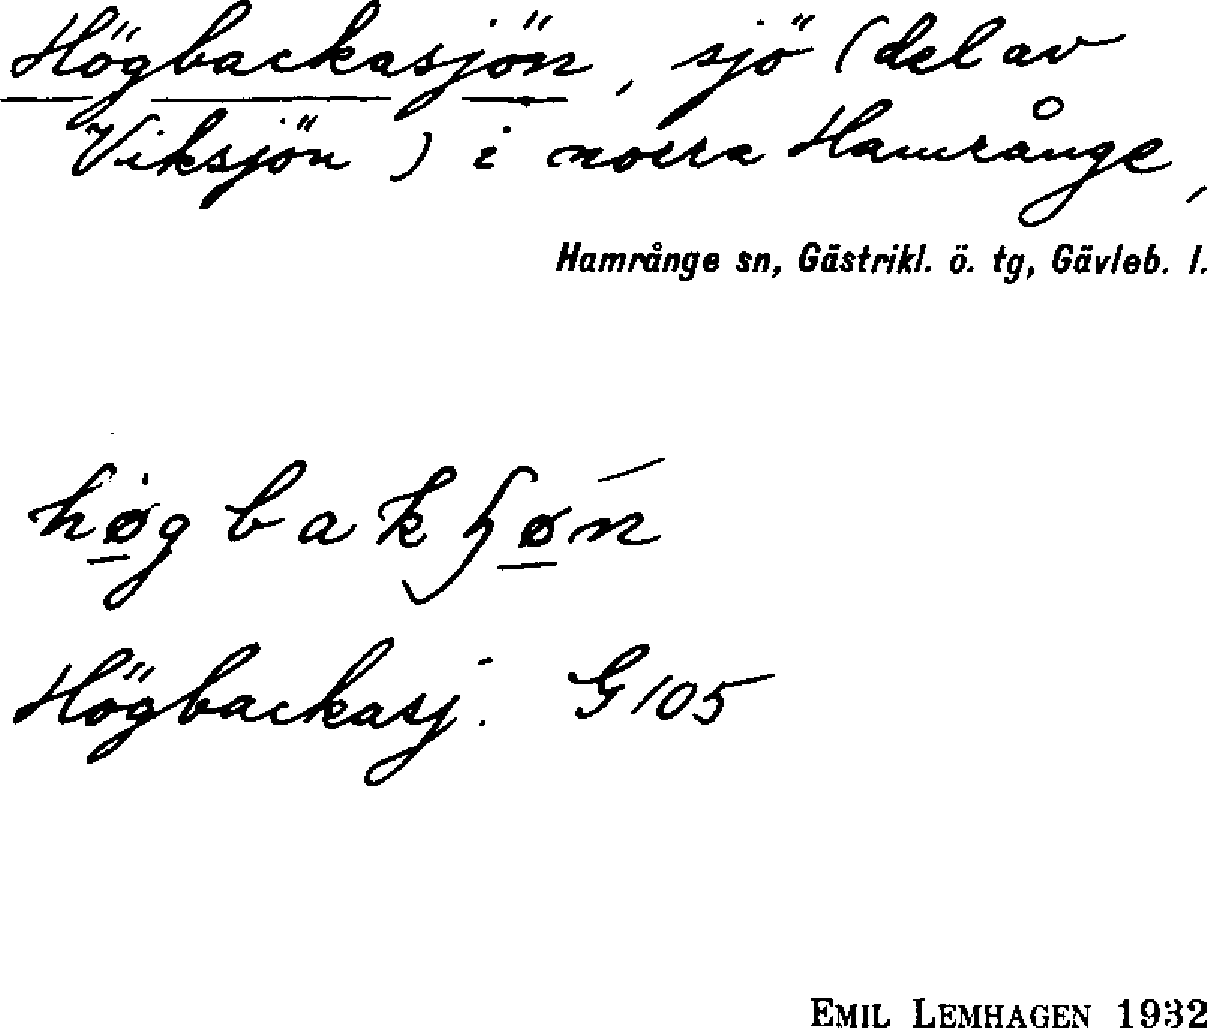 Högbackasjön, sjö (del av
Viksjön) i norra Hamrånge,
Hamrånge sn, Gästrikl. ö. tg, Gävleb. l.
Högbackasj. G 105
EMIL LEMHAGEN 1932